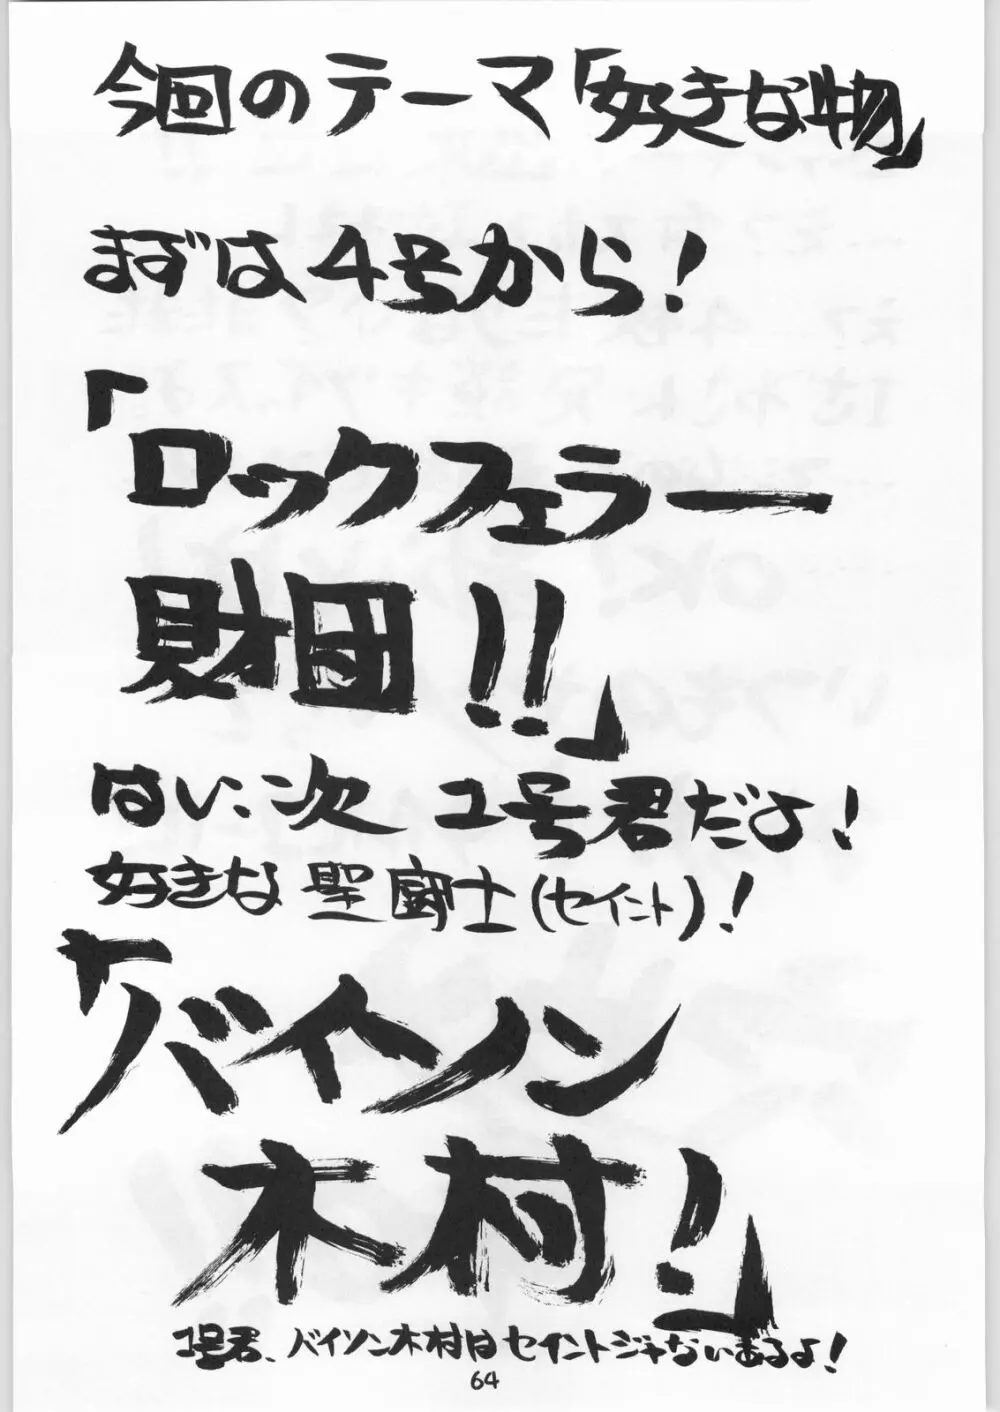 今回のテーマ「好きな物」
まずは4号から！
「ロックフェラー
財団!!」
はい、次 1号君だよ！
好きな 聖闘士(セイント)！
「バイソン
木村！」
1号君、バイソン木村はセイントジャないあるよ！
64